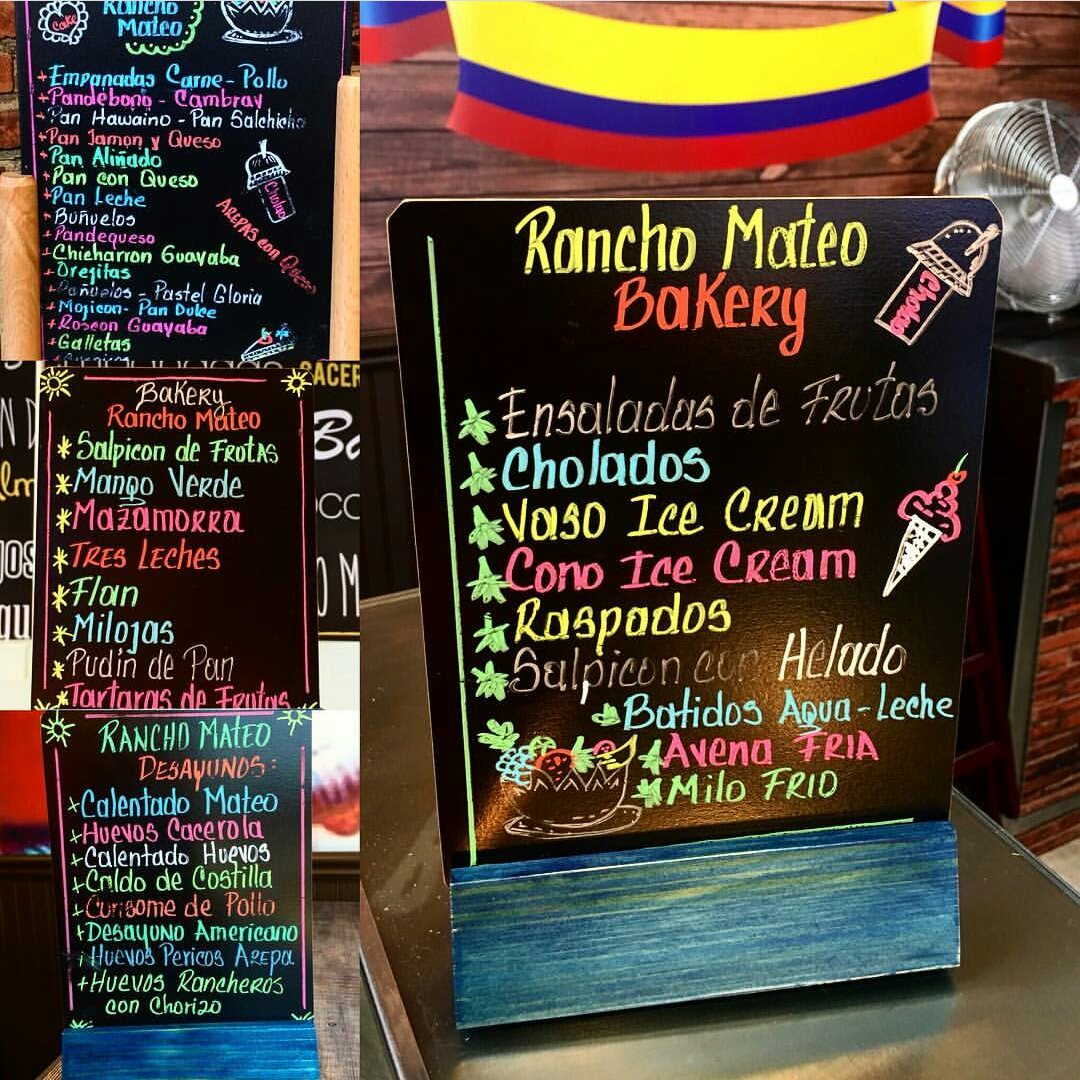 Cake
Rancho
Mateo
+Empanadas Carne-Pollo
+Pandebono - Cambray
+Pan Hawaino - Pan Salchicha
+Pan Jamon y Queso
+Pan Aliñado
+Pan con Queso
+Pan Leche
+Buñuelos
+Pandequeso
+Chicharron Guayaba
+Orejitas
+Pañuelos - Pastel Gloria
+Mojicon- Pan Dulce
+Roscon Guayaba
+Galletas
Cholao
AREPAS con Queso
BAKERY
Rancho Mateo
*Salpicon de FRUTAS
*Mango Verde
*MAZAMORRA
*TRES LECHES
*Flan
*Milojas
*Pudin de Pan
*Tartaras de Frutas
RANCHO MATEO
DESAYUNOS:
+Calentado Mateo
+Huevos Cacerola
+Calentado Huevos
+Caldo de Costilla
+Consome de Pollo
+Desayuno Americano
+Huevos Pericos Arepa
+Huevos Rancheros
con Chorizo
Rancho Mateo
BAKERY
Cholao
*Ensaladas de FRUTAS
*Cholados
*Vaso Ice CREAM
*Cono Ice CREAM
*Raspados
*Salpicon con Helado
*Batidos Agua-Leche
*Avena FRIA
*Milo FRIO